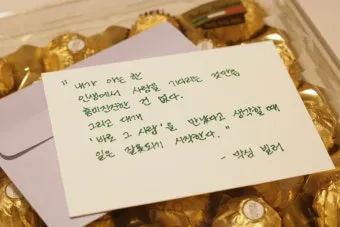 " 내가 아는 한
인생에서 사랑을 기다리는 것만큼
흥미진진한 건 없다.
그리고 대개
'바로 그 사람'을 만났다고 생각할 때
일은 잘못되기 시작한다. "
- 막심 빌러